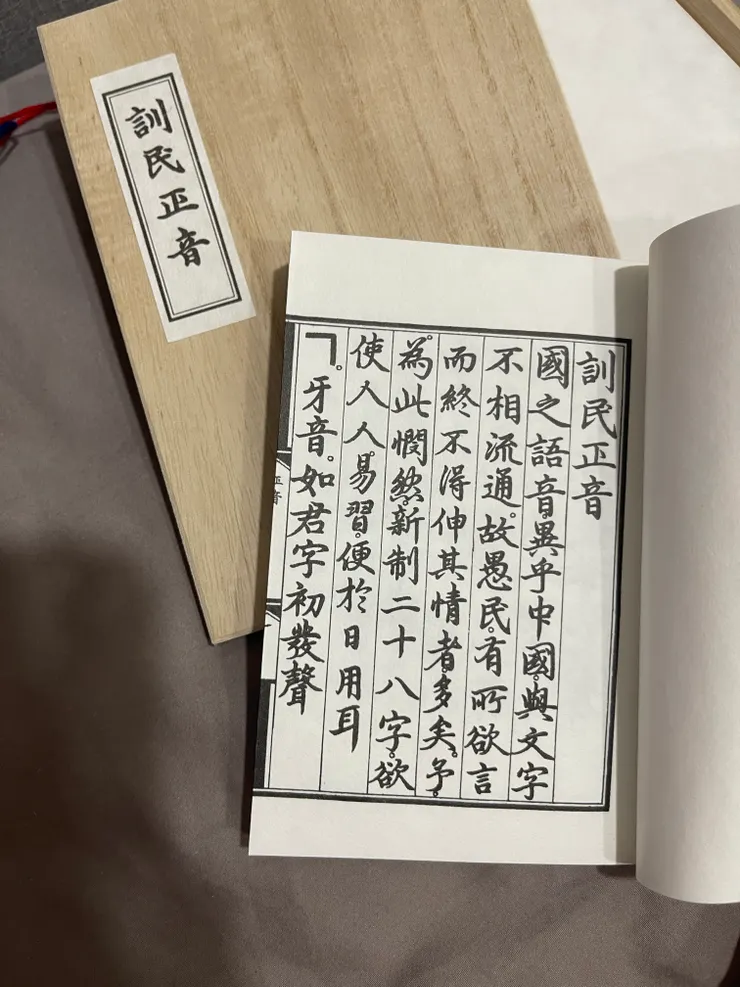 訓民正音
訓民正音
國之語音。異乎中國。與文字
不相流通。故愚民。有所欲言
而終不得伸其情者。多矣。予。
為此憫然。新制二十八字。欲
使人人。易習。便於日用耳
ㄱ。牙音。如君字初發聲
正音